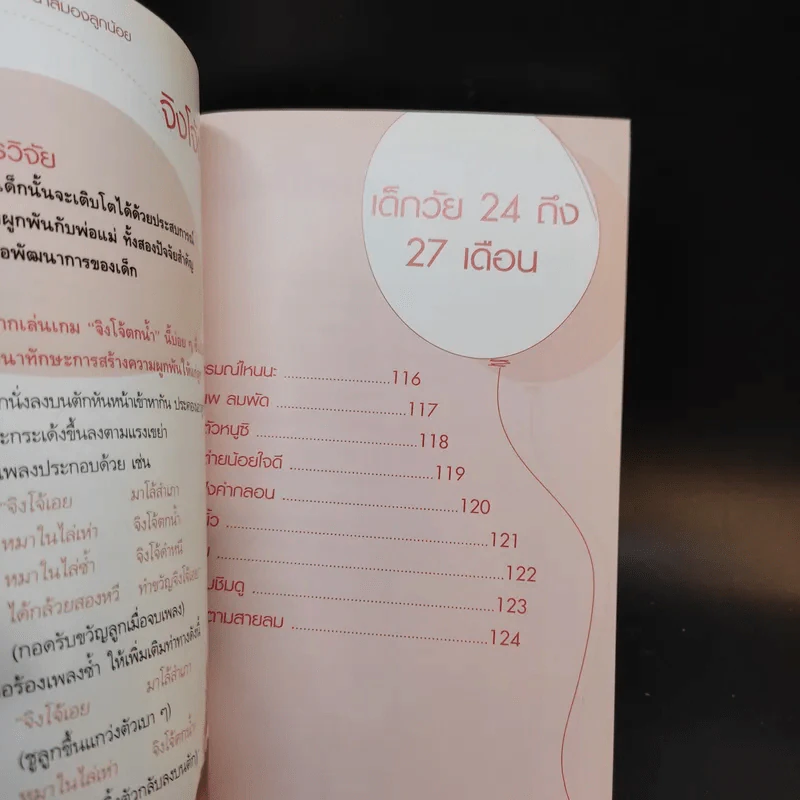 าสมองลูกน้อย
จิงโจ้
รวิจัย
เด็กนั้นจะเติบโตได้ด้วยประสบการณ์
ผูกพันกับพ่อแม่ ทั้งสองปัจจัยสำคัญ
อพัฒนาการของเด็ก
ากเล่นเกม “จิงโจ้ตกน้ำ” นี้บ่อย ๆ
นาทักษะการสร้างความผูกพันให้
กนั่งลงบนตักหันหน้าเข้าหากัน
ะกระเด้งขึ้นลงตามแรงเขย่า
เพลงประกอบด้วย เช่น
“จิงโจ้เอย มาโล้สำเภา
หมาในไล่เห่า จิงโจ้ตกน้ำ
หมาในไล่ซ้ำ จิงโจ้ดำหนี
ได้กล้วยสองหวี ทำขวัญจิงโจ้เอย”
(กอดรับขวัญลูกเมื่อจบเพลง)
อร้องเพลงซ้ำ ให้เพิ่มเติมท่าทางดังนี้
“จิงโจ้เอย มาโล้สำเภา
(ชูลูกขึ้นแกว่งตัวเบา ๆ)
หมาในไล่เห่า จิงโจ้ตกน้ำ
ตัวกลับลงบนตัก)
เด็กวัย 24 ถึง
27 เดือน
รมณ์ไหนนะ 116
ลมพัด 117
ตัวหนูซิ 118
ต่ายน้อยใจดี 119
คำกลอน 120
121
122
ชิมดู 123
ตามสายลม 124